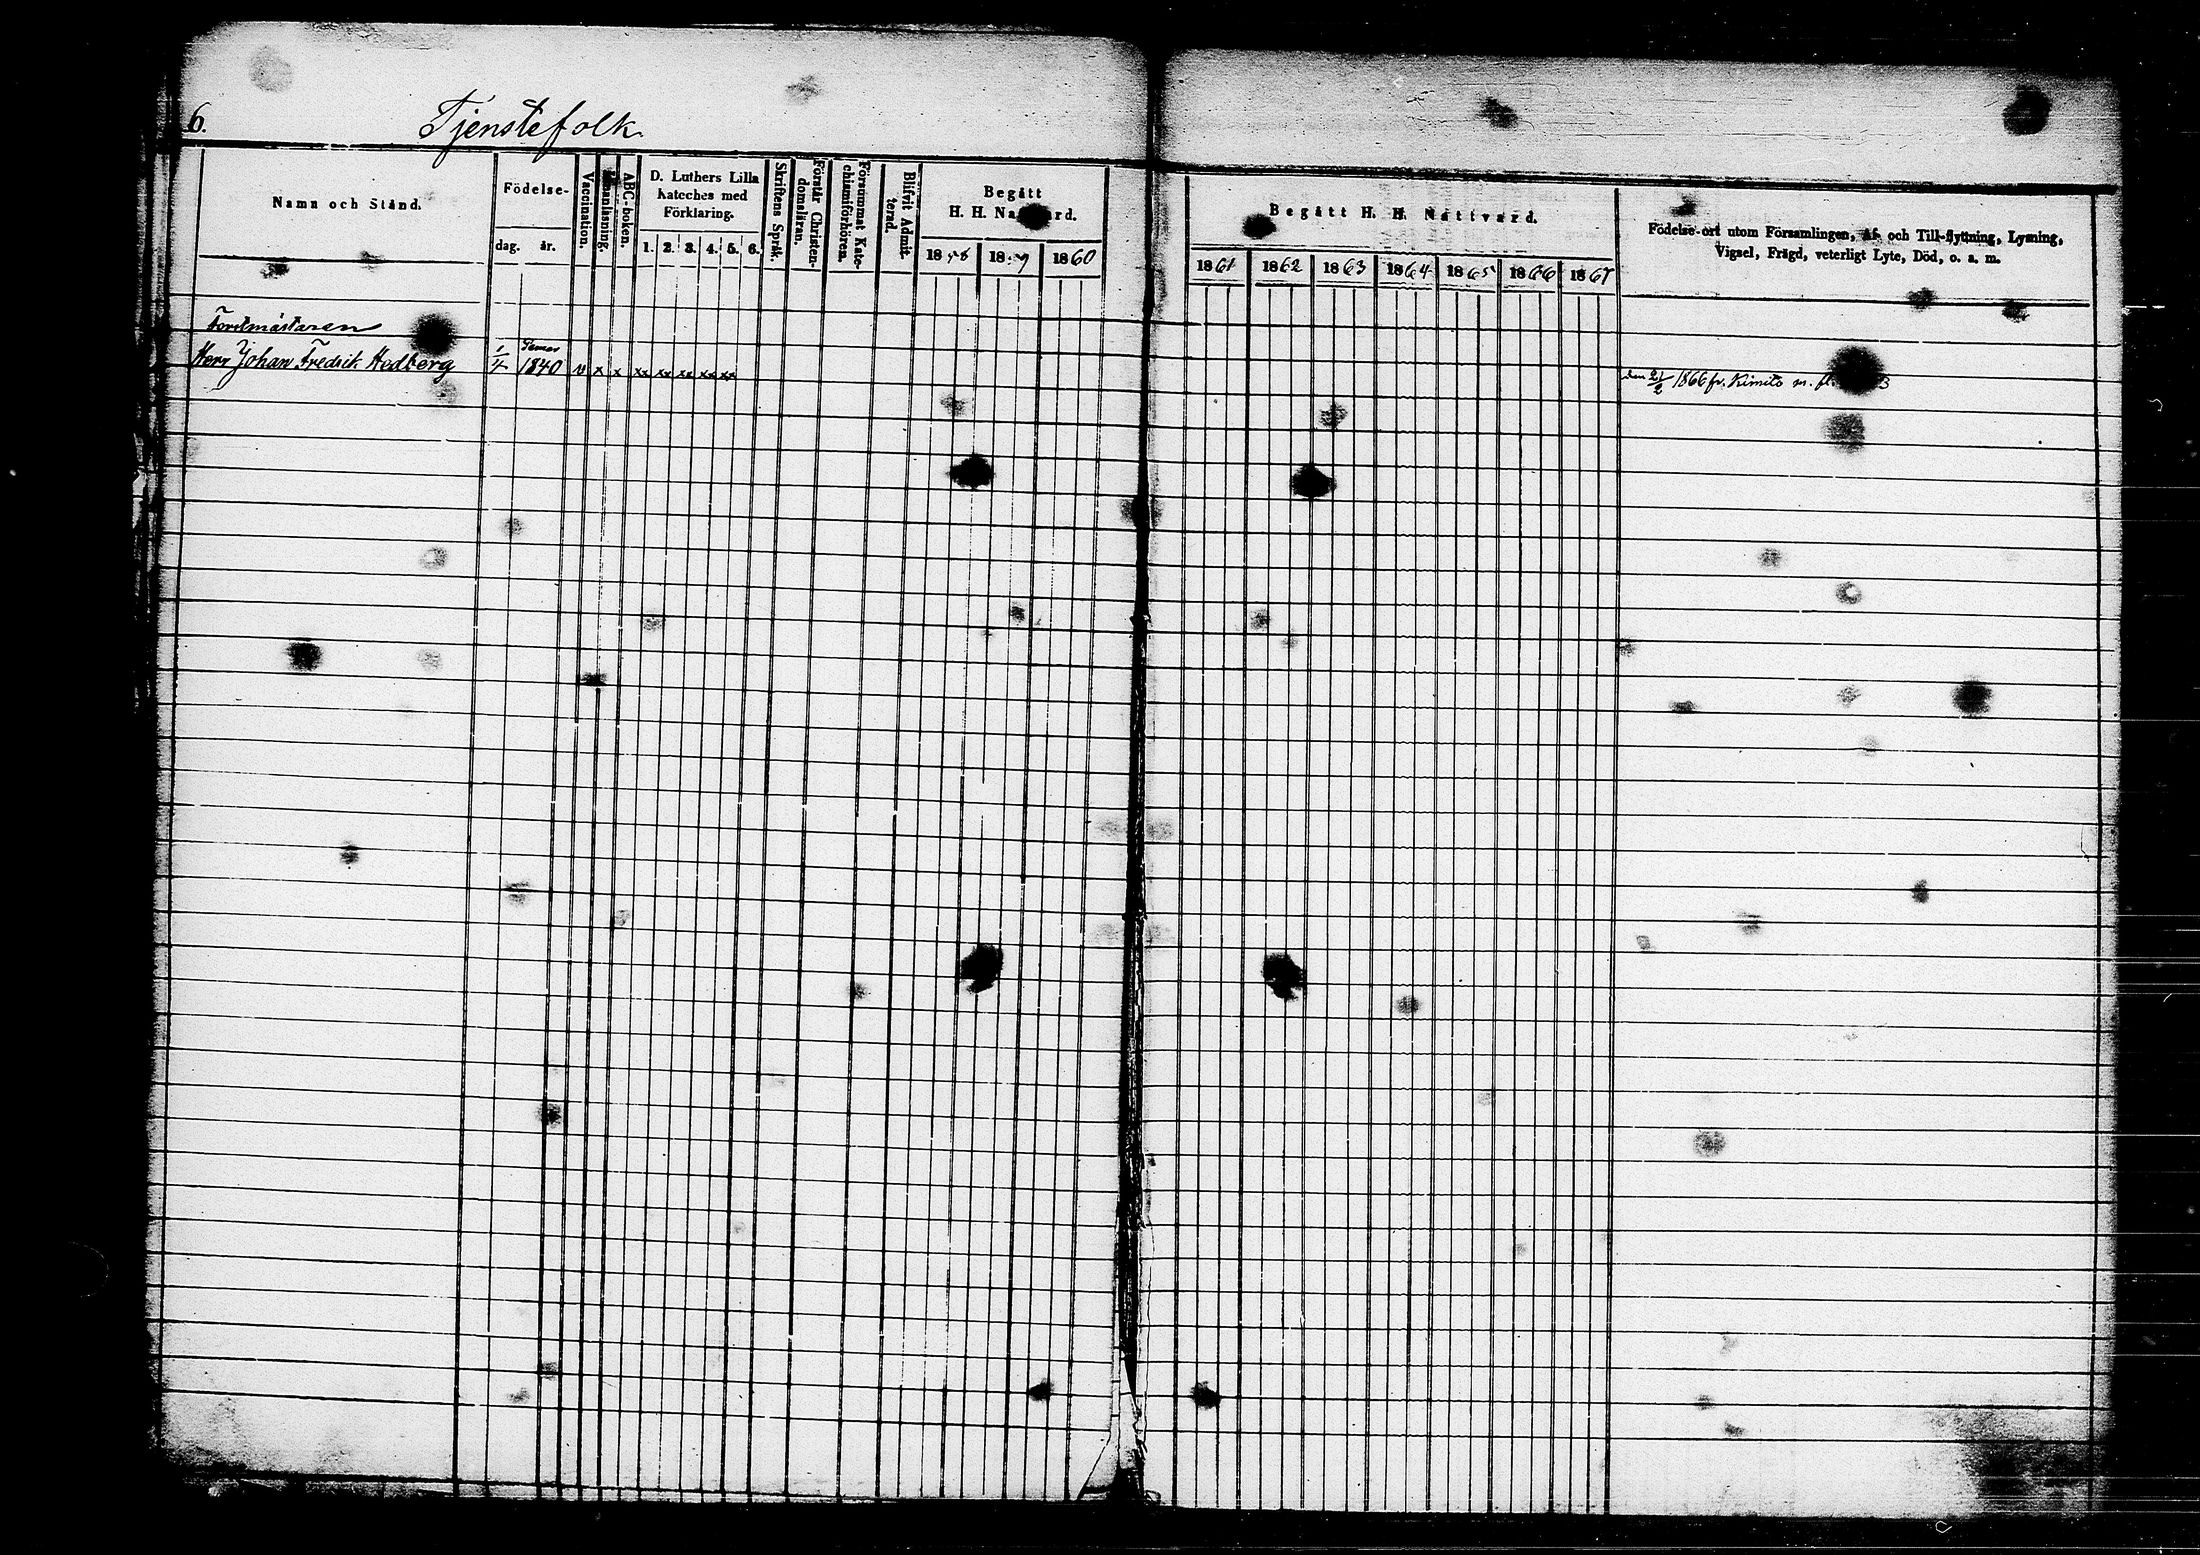 6.
Tjenstefolk.
Namn och Stånd.
Födelse-
dag. år.
Vaccination.
Innanläsning.
ABC-boken.
D. Luthers Lilla
Kateches med
Förklaring.
1. 2. 3. 4. 5. 6.
Skriftens Språk.
Förstår Christen-
domsläran.
Försummat Kate-
chismiförhören.
Blifvit Admit-
terad.
Begått
H. H. Nattvard.
1858 1859 1860
Begått H. H. Nattvard.
1861 1862 1863 1864 1865 1866 1867
Födelse-ort utom Församlingen, Af- och Till-flyttning, Lysning,
Vigsel, Frägd, veterligt Lyte, Död, o. s. m.
Forstmästaren
Herr Johan Fredrik Hedberg 1/4 1840 v x x xx xx xx xx xx den 21/2 1866 fr. Kimito